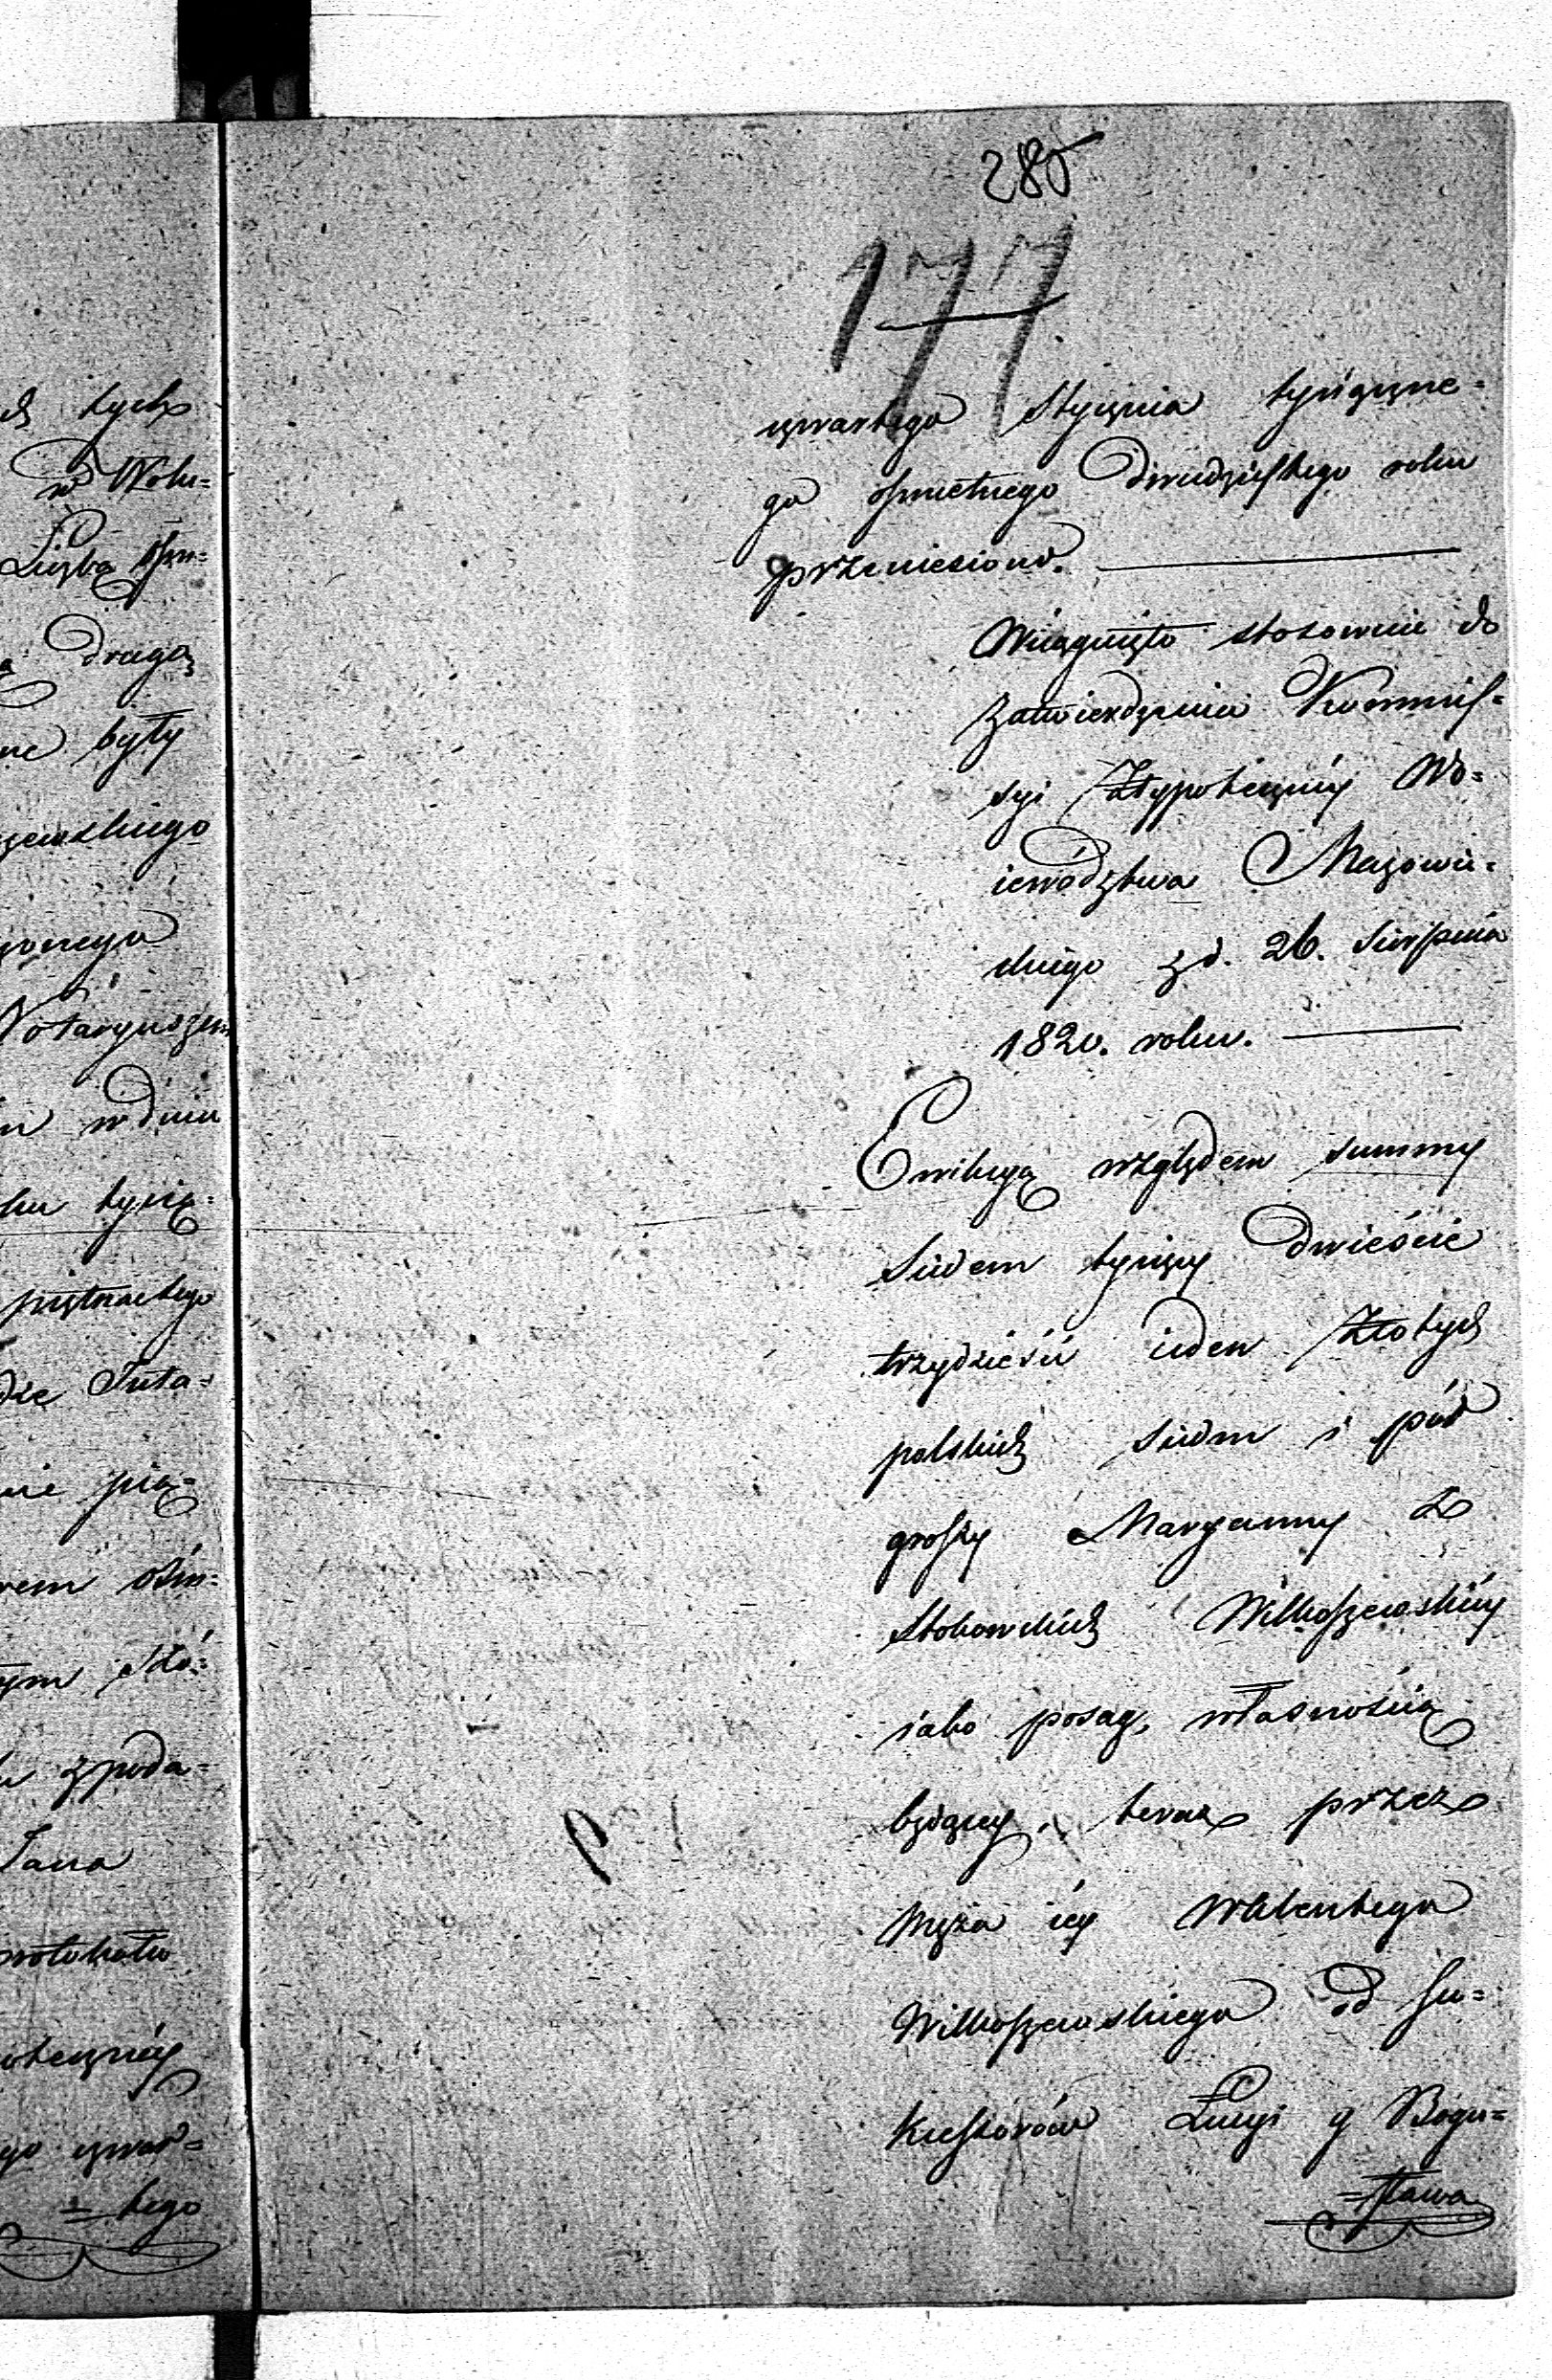 285
177
czwartego Stycznia tysiączne=
go osmsetnego Dwudziestego roku
przeniesiono.
Wciągnięto stosownie do
zatwierdzenia Kommis=
syi Hypoteczney Wo=
iewództwa Mazowie=
ckiego z d. 26. Sierpnia
1820. roku.
Ewikcyą względem summy
Siedem tysięcy Dwieście
trzydzieści ieden Złotych
polskich siedm i pół
groszy Maryanny z
Stokowskich Wilkoszewskiéy
iako posag, własnością
będącey, teraz przez
Męża iéy Walentego
Wilkoszewskiego od Su=
kcessorów Łucyi y Bogu=
=sława
tych
w Wolu=
Liczbą Osm=
drugą
były
szewskiego
Notaryuszem
w dniu
tysią=
piętnastego
Tuta=
pią=
ośm=
zpoda=
Jana
protokołu
czwar=
=tego